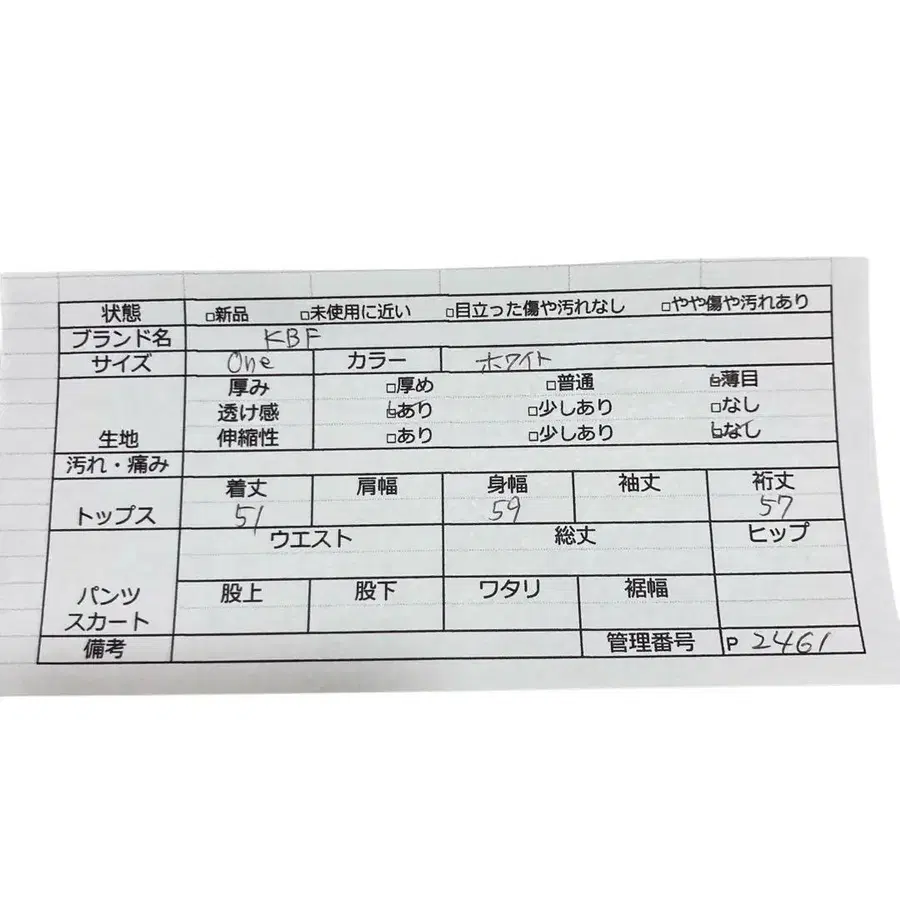 状態 □新品 □未使用に近い □目立った傷や汚れなし □やや傷や汚れあり
ブランド名 KBF
サイズ One カラー ホワイト
厚み □厚め □普通 □薄目
透け感 □あり □少しあり □なし
生地 伸縮性 □あり □少しあり □なし
汚れ・痛み
着丈 肩幅 身幅 袖丈 裄丈
トップス 51 59 57
ウエスト 総丈 ヒップ
パンツ 股上 股下 ワタリ 裾幅
スカート
備考 管理番号 P 2461